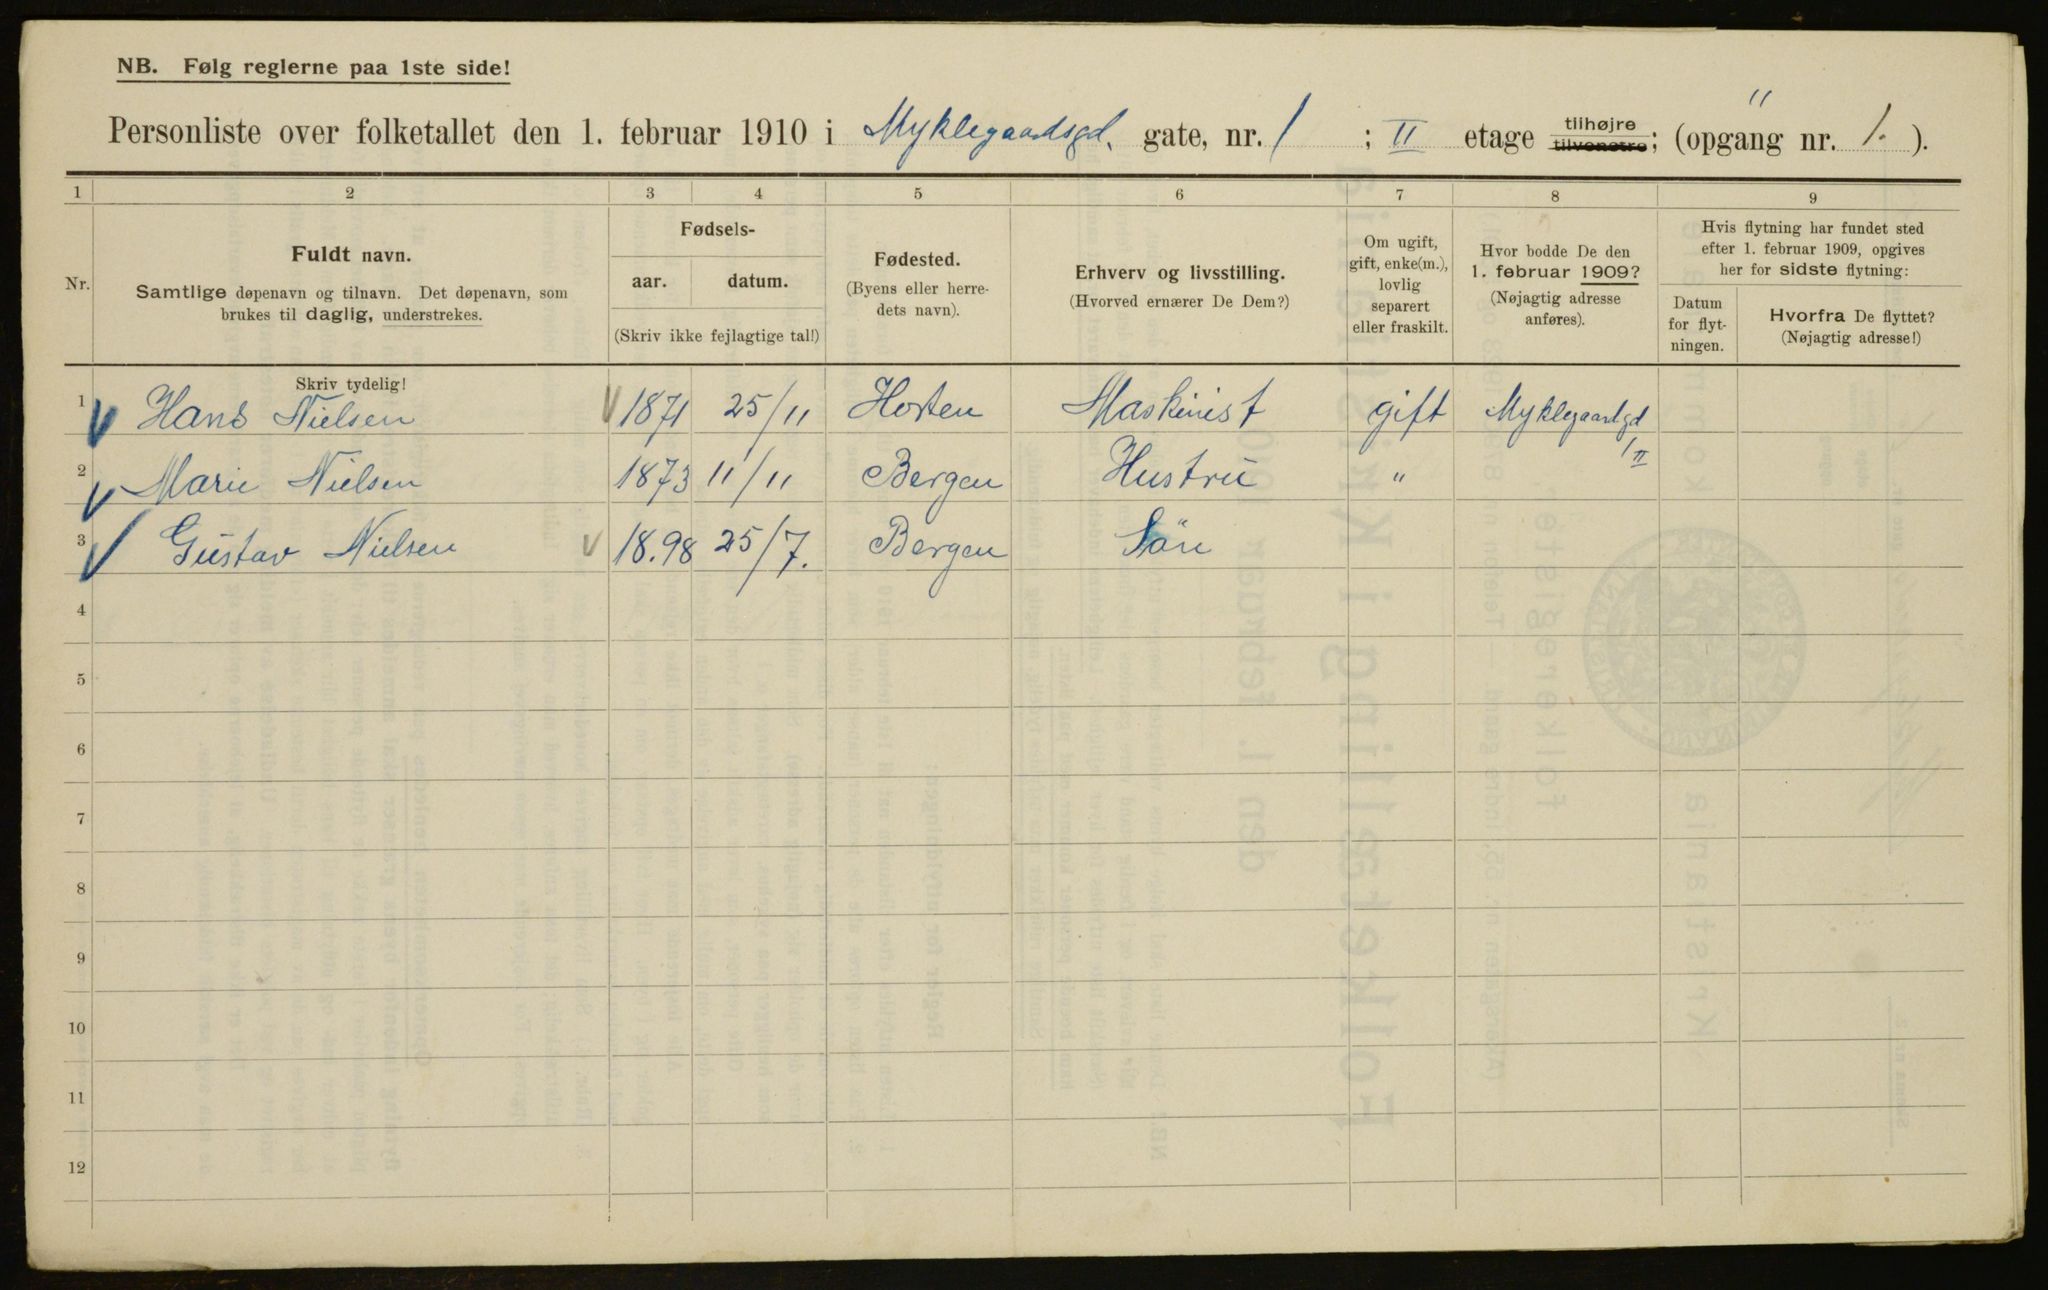 NB. Følg reglerne paa 1ste side!
Personliste over folketallet den 1. februar 1910 i Myklegaardsgd. gate, nr. 1 ; II etage tilhøjre tilvenstre; (opgang nr. 1. ).
"
1 2 3 4 5 6 7 8 9
Nr.
Fuldt navn.
Samtlige døpenavn og tilnavn. Det døpenavn, som
brukes til daglig, understrekes.
Fødsels-
aar. datum.
(Skriv ikke fejlagtige tal!)
Fødested.
(Byens eller herre-
dets navn).
Erhverv og livsstilling.
(Hvorved ernærer De Dem?)
Om ugift,
gift, enke(m.),
lovlig
separert
eller fraskilt.
Hvor bodde De den
1. februar 1909?
(Nøjagtig adresse
anføres).
Hvis flytning har fundet sted
efter 1. februar 1909, opgives
her for sidste flytning:
Datum
for flyt-
ningen.
Hvorfra De flyttet?
(Nøjagtig adresse!)
Skriv tydelig!
1 Hans Nielsen 1871 25/11 Horten Maskinist gift Myklegaardgd
1/II
2 Marie Nielsen 1873 11/11 Bergen Hustru "
3 Gustav Nielsen 18.98 25/7. Bergen Sön
4
5
6
7
8
9
10
11
12